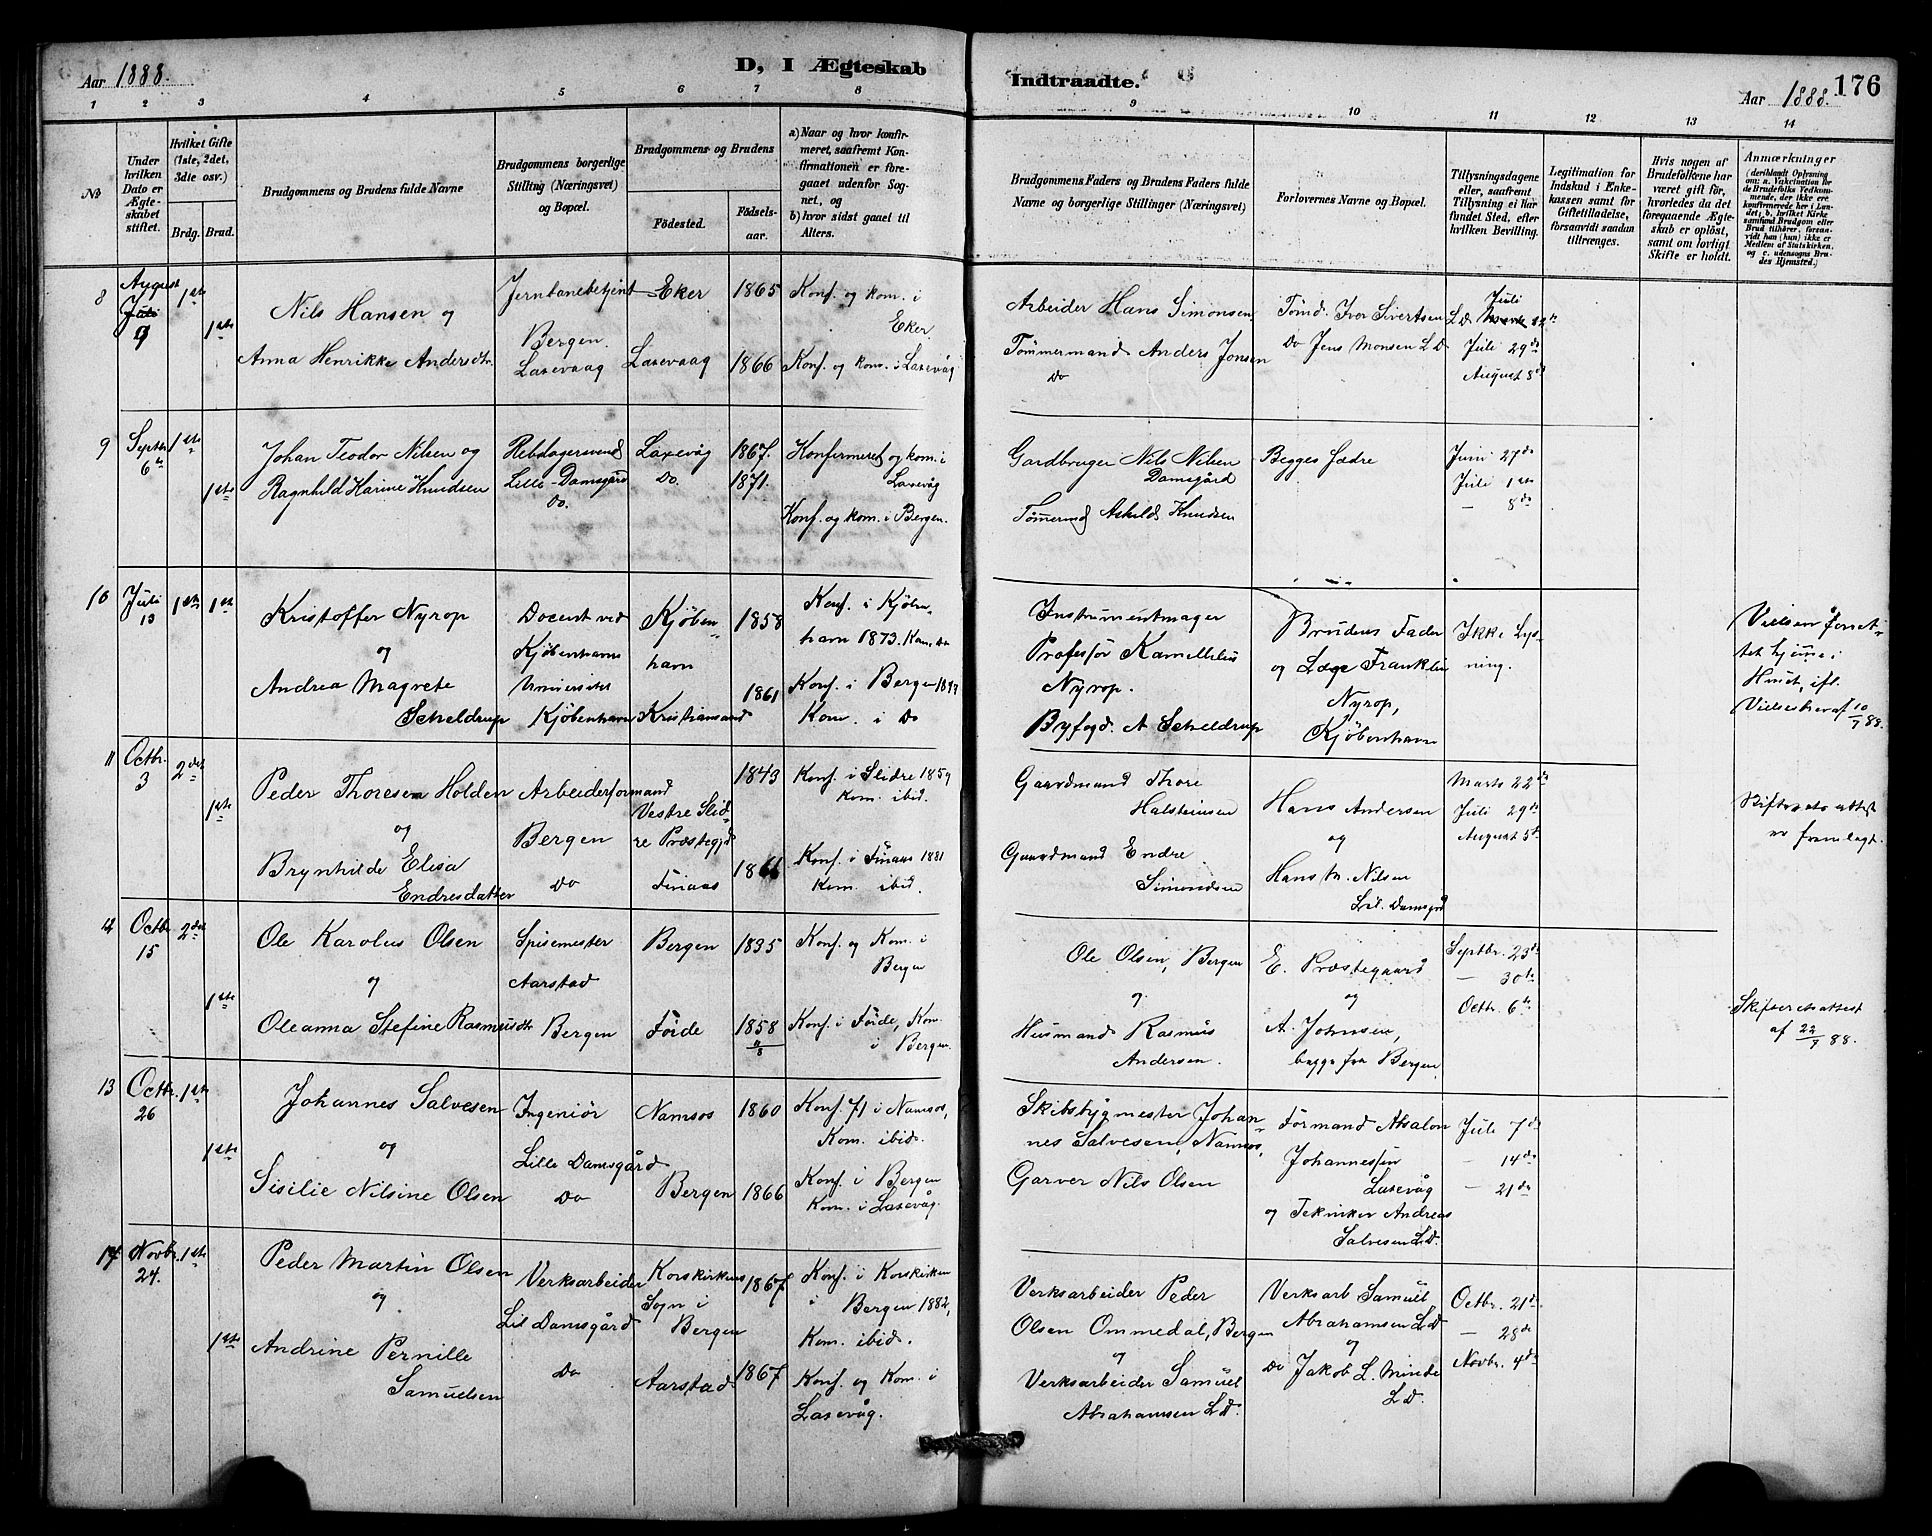 Aar 1888.
D, I Ægteskab
Indtraadte.
Aar 1888.
176
1 2 3 4 5 6 7 8 9 10 11 12 13 14
№
Under hvilken Dato er Ægteskabet stiftet.
Hvilket Gifte (1ste, 2det, 3die osv.)
Brdg. Brud.
Brudgommens og Brudens fulde Navne
Brudgommens borgerlige Stilling (Næringsvei) og Bopæl.
Brudgommens og Brudens
Fødested.
Fødselsaar.
a) Naar og hvor konfirmeret, saafremt Konfirmationen er foregaaet udenfor Sognet, og
b) hvor sidst gaaet til Alters.
Brudgommens Faders og Brudens Faders fulde Navne og borgerlige Stillinger (Næringsvei)
Forlovernes Navne og Bopæl.
Tillysningsdagene eller, saafremt Tillysning ei har fundet Sted, efter hvilken Bevilling.
Legitimation for Indskud i Enkekassen samt for Giftetilladelse, forsaavidt saadan tiltrænges.
Hvis nogen af Brudefolkene har været gift før, hvorledes da det foregaaende Ægteskab er opløst, samt om lovligt Skifte er holdt.
Anmærkninger (deriblandt Oplysning om: a. Vakcination for de Brudefolks Vedkommende, der ikke ere konfirmerede her i Landet; b. hvilket Kirkesamfund Brudgom eller Brud tilhører, forsaavidt han (hun) ikke er Medlem af Statskirken, og c. udensogns Brudes Hjemsted.)
8
August
Juli
9
1ste
1ste
Nils Hansen og
Anna Henrikke Andersdtr.
Jernbanebetjent
Bergen.
Laxevaag
Eker
Laxevaag
1865
1866
Konf. og kom. i
Eker
Konf. og kom. i Laxevåg
Arbeider Hans Simonsen
Tømmermand Anders Jonsen
Do
Tømd. Iver Sivertsen L D
Do Jens Monsen L D
Juli
Juli 29de
August 8de
9
Septbr
6te
1ste
1ste
Johan Teodor Nilsen og
Ragnhild Karine Knudsen
Rebslagersvend
Lille-Damsgård
Do.
Laxevåg
Do.
1867.
1871.
Konfirmeret og kom. i
Laxevåg
Konf. og kom. i Bergen.
Gardbruger Nils Nilsen
Damsgård
Tømmermd Askild Knudsen
Begges fædre
Juni 27de
Juli 1ste
— 8de
10
Juli
13
1ste
1ste
Kristoffer Nyrop
og
Andrea Magrete
Scheldrup
Docent ved
Kjøbenhavns
Universitet
Kjøbenhavn
Kjøben-
havn
Kristiansand
1858
1861
Konf. i Kjøben-
havn 1873. Kom. Do
Konf. i Bergen
Kom. i Do
Instrumentmager
Professor Kamillelus
Nyrop.
Byfogd. A Scheldrup
Brudens Fader
og Læge Franklin
Nyrop,
Kjøbenhavn
Ikke Lys-
ning.
Vielsen forret-
tet hjemme i
Huset, ifl.
Vielsesbrev af 10/7 88.
11
Octbr.
3
2det
1ste
Peder Thoresen Holden
og
Brynhilde Elisa
Endresdatter
Arbeiderformand
Bergen
Do
Vestre Slid-
re Præstegjd
Finaas
1843
1866
Konf. i Slidre 1859
Kom. ibid.
Konf. i Finaas 1881
Kom. ibid.
Gaardmand Thore
Halsteinsen
Gaardmand Endre
Simondsen
Hans Andersen
og
Hans M. Nilsen
Lil. Damsgrd
Marts 22de
Juli 29de
August 5te
Skifteretsattest
er fremlagt.
12
Octbr
15
2det
1ste
Ole Karolus Olsen
og
Oleanna Stefine Rasmusdtr
Spisemester
Aarstad
Bergen
Bergen
Förde
1835
1858
11/8
Konf. og Kom. i
Bergen
Konf. i Förde, Kom.
i Bergen.
Ole Olsen, Bergen
og
Husmand Rasmus
Andersen.
E. Præstegaard
og
A. Johnsen,
begge fra Bergen
Septbr. 23de
— 30te
Octbr. 6te
Skifteretsattest
af 22/9 88.
13
Octbr.
26
1ste
1ste
Johannes Salvesen
og
Sisilie Nilsine Olsen
Ingeniör
Lille Damsgård
Do
Namsos
Bergen
1860
1866
Konf. 71 i Namsos,
Kom. ibid.
Konf. i Bergen
Kom. i Laxevåg.
Skibsbygmester Johan-
nes Salvesen, Namsos,
Garver Nils Olsen
Formand Absalon
Johannessen
Laxevåg
og Tekniker Andreas
Salvesen L.D.
Juli 7de
— 14de
— 21de
14
Novbr.
24.
1ste
1ste
Peder Martin Olsen
og
Andrine Pernille
Samuelsen
Verksarbeider
Lil Damsgård
Do
Korskirkens
Sogn i
Bergen
Aarstad
1867
1867
Konf. i Korskirken
i Bergen 1882,
Kom. ibid.
Konf. og Kom. i
Laxevåg.
Verksarbeider Peder
Olsen Ommedal, Bergen
og
Verksarbeider Samuel
Abrahamsen L D.
Verksarb Samuel
Abrahamsen L D
og
Do Jakob L. Minde
L D.
Octbr. 21de
— 28de
Novbr. 4de